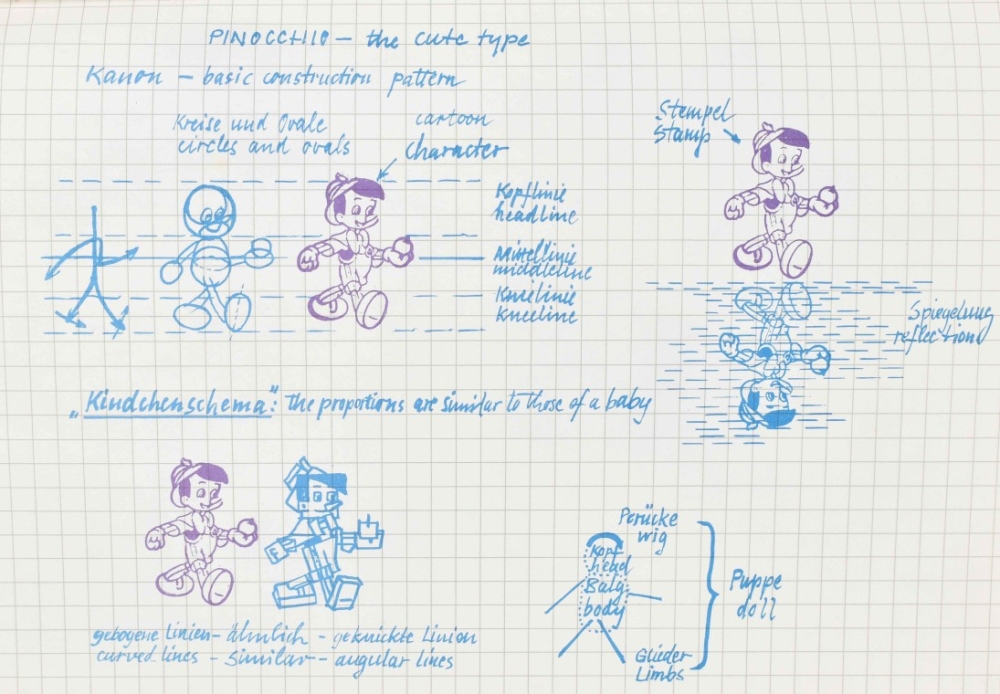 PINOCCHIO – the cute type
Kanon – basic construction pattern
Kreise und Ovale
circles and ovals
cartoon
character
Stempel
stamp
Kopflinie
headline
Mittellinie
middleline
Knielinie
kneeline
Spiegelung
reflection
„Kindchenschema": the proportions are similar to those of a baby
gebogene Linien – ähnlich – geknickte Linien
curved lines – similar – angular lines
Perücke
wig
Kopf
head
Balg
body
Puppe
doll
Glieder
Limbs